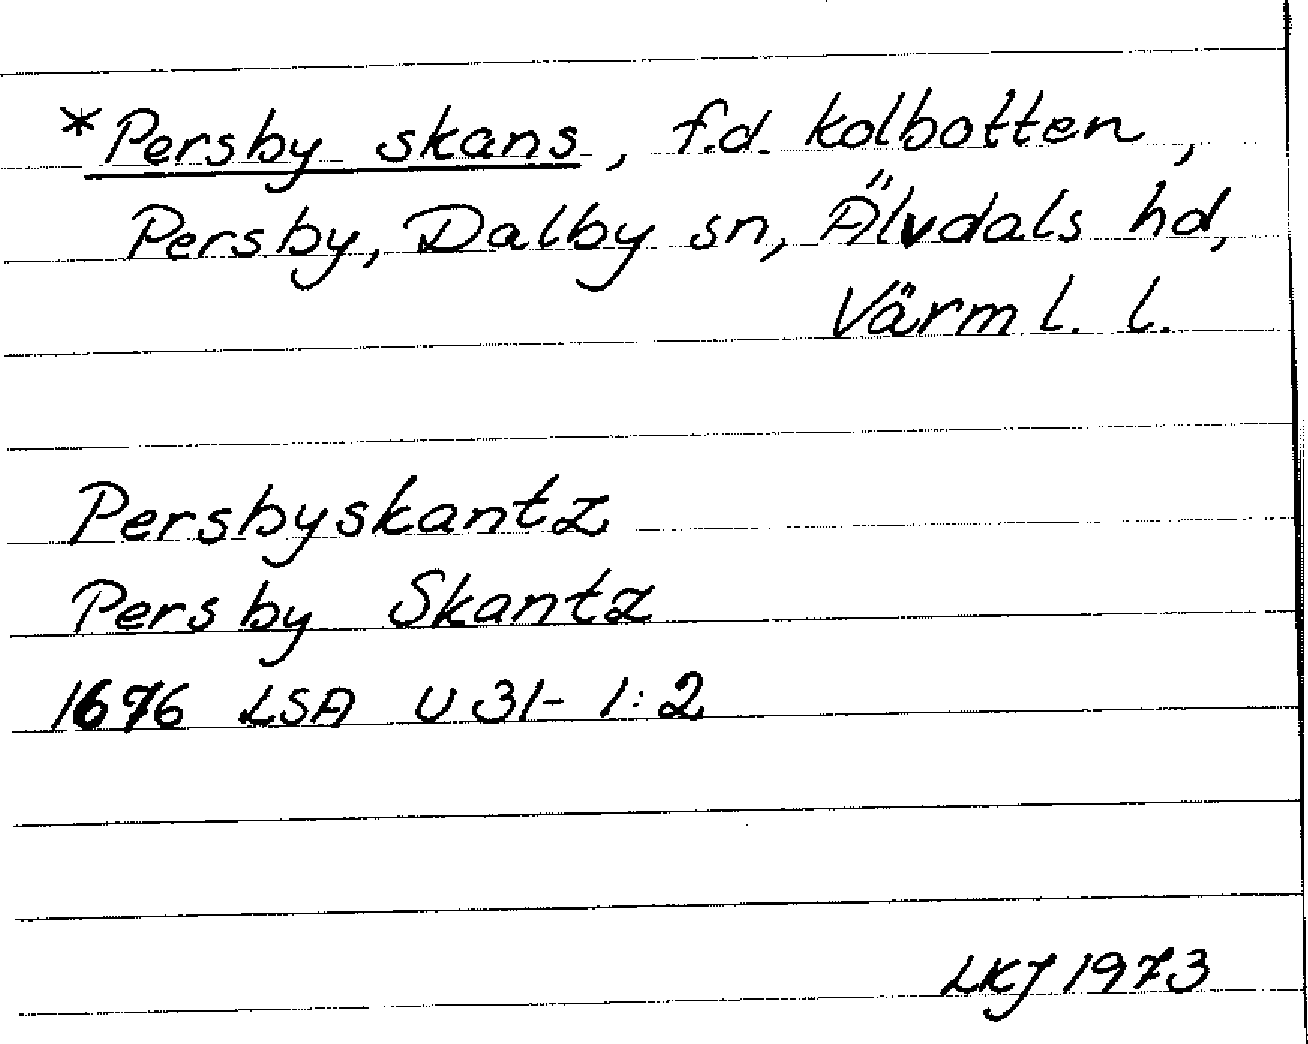 *Persby skans, f.d. kolbotten,
Persby, Dalby sn, Älvdals hd,
Värml. l.
Persbyskantz
Persby Skantz
1676 LSA U 31- 1:2
LKJ 1973